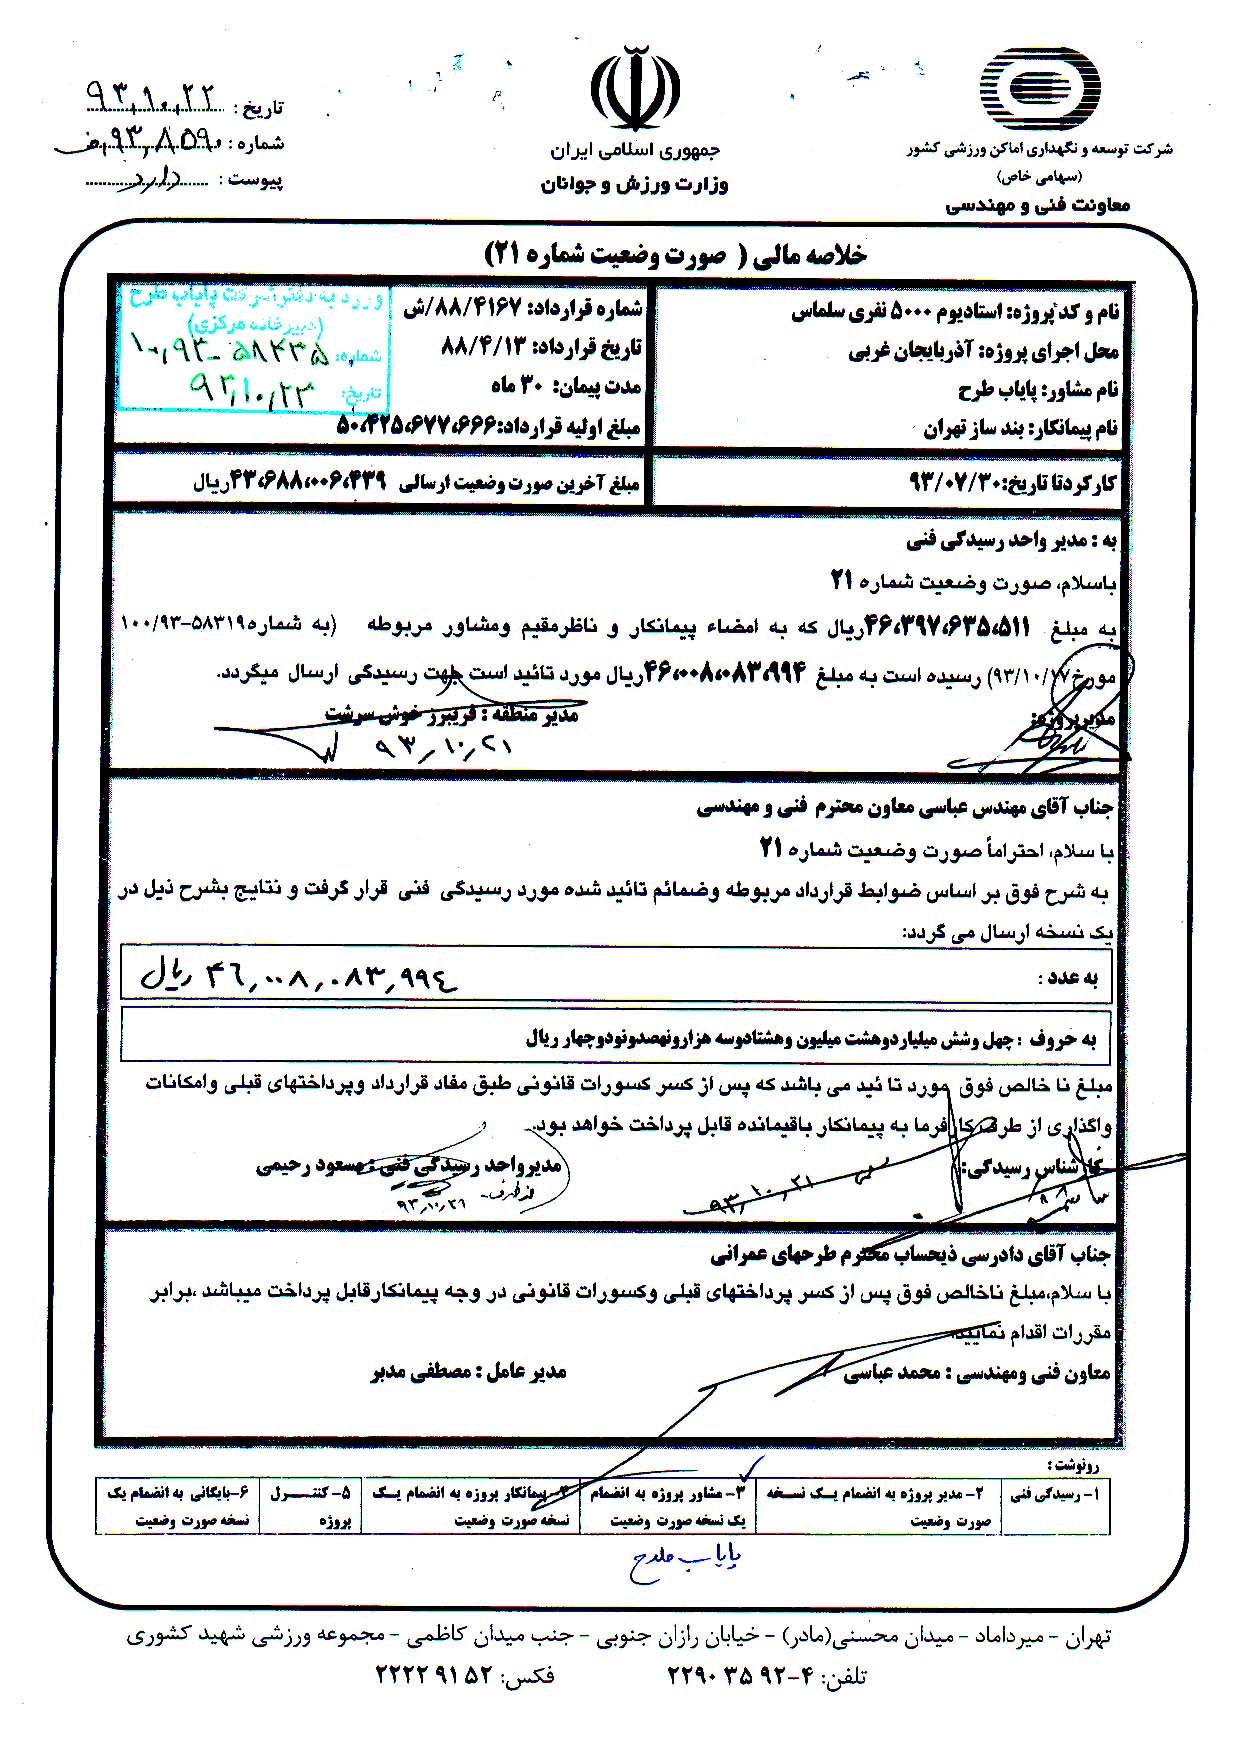 شرکت توسعه و نگهداری اماکن ورزشی کشور
(سهامی خاص)
معاونت فنی و مهندسی
جمهوری اسلامی ایران
وزارت ورزش و جوانان
تاریخ: ۹۳,۱۰,۲۲
شماره: ۹۳,۸۵۹۰
پیوست: دارد
خلاصه مالی ( صورت وضعیت شماره ۲۱)
نام و کد پروژه: استادیوم ۵۰۰۰ نفری سلماس
محل اجرای پروژه: آذربایجان غربی
نام مشاور: پایاب طرح
نام پیمانکار: بند ساز تهران
شماره قرارداد: ۸۸/۴۱۶۷/ش
تاریخ قرارداد: ۸۸/۴/۱۳
مدت پیمان: ۳۰ ماه
مبلغ اولیه قرارداد:۵۰،۴۲۵،۶۷۷،۶۶۶
ورود به دفتر شرکت پایاب طرح
(دبیرخانه مرکزی)
شماره: ۱۰۰,۹۳-۵۸۴۳۵
تاریخ: ۹۳,۱۰,۲۳
کارکردتا تاریخ:۹۳/۰۷/۳۰
مبلغ آخرین صورت وضعیت ارسالی ۴۳،۶۸۸،۰۰۶،۴۳۹ریال
به : مدیر واحد رسیدگی فنی
باسلام، صورت وضعیت شماره ۲۱
به مبلغ ۴۶،۳۹۷،۶۳۵،۵۱۱ریال که به امضاء پیمانکار و ناظرمقیم ومشاور مربوطه (به شماره۵۸۳۱۹-۱۰۰/۹۳
مورخ۹۳/۱۰/۱۷) رسیده است به مبلغ ۴۶،۰۰۸،۰۸۳،۹۹۴ریال مورد تائید است جهت رسیدگی ارسال میگردد.
مدیرپروژه:
مدیر منطقه : فریبرز خوش سرشت
۹۳,۱۰,۲۱
جناب آقای مهندس عباسی معاون محترم فنی و مهندسی
با سلام، احتراماً صورت وضعیت شماره ۲۱
به شرح فوق بر اساس ضوابط قرارداد مربوطه وضمائم تائید شده مورد رسیدگی فنی قرار گرفت و نتایج بشرح ذیل در
یک نسخه ارسال می گردد:
به عدد : ۴۶,۰۰۸,۰۸۳,۹۹۴ ریال
به حروف : چهل وشش میلیاردوهشت میلیون وهشتادوسه هزارونهصدونودوچهار ریال
مبلغ نا خالص فوق مورد تا ئید می باشد که پس از کسر کسورات قانونی طبق مفاد قرارداد وپرداختهای قبلی وامکانات
واگذاری از طرف کارفرما به پیمانکار باقیمانده قابل پرداخت خواهد بود.
کارشناس رسیدگی:
۹۳,۱۰,۲۱
مدیرواحد رسیدگی فنی : مسعود رحیمی
۹۳,۱۰,۲۱
جناب آقای دادرسی ذیحساب محترم طرحهای عمرانی
با سلام،مبلغ ناخالص فوق پس از کسر پرداختهای قبلی وکسورات قانونی در وجه پیمانکارقابل پرداخت میباشد ،برابر
مقررات اقدام نمایید.
معاون فنی ومهندسی : محمد عباسی
مدیر عامل : مصطفی مدبر
رونوشت :
۱- رسیدگی فنی
۲- مدیر پروژه به انضمام یک نسخه
صورت وضعیت
۳- مشاور پروژه به انضمام
یک نسخه صورت وضعیت
۴- پیمانکار پروزه به انضمام یک
نسخه صورت وضعیت
۵- کنترل
پروژه
۶-بایگانی به انضمام یک
نسخه صورت وضعیت
پایاب طرح
تهران - میرداماد - میدان محسنی(مادر) - خیابان رازان جنوبی - جنب میدان کاظمی - مجموعه ورزشی شهید کشوری
تلفن: ۴-۹۲ ۳۵ ۲۲۹۰
فکس: ۵۲ ۹۱ ۲۲۲۲